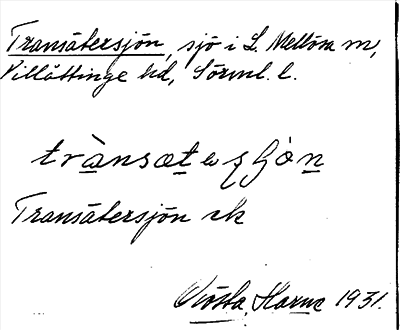 Transätersjön, sjö i L. Mellösa sn,
Villåttinge hd, Sörml. l.
trànsætesjón
Transätersjön ek
Harne 1931.